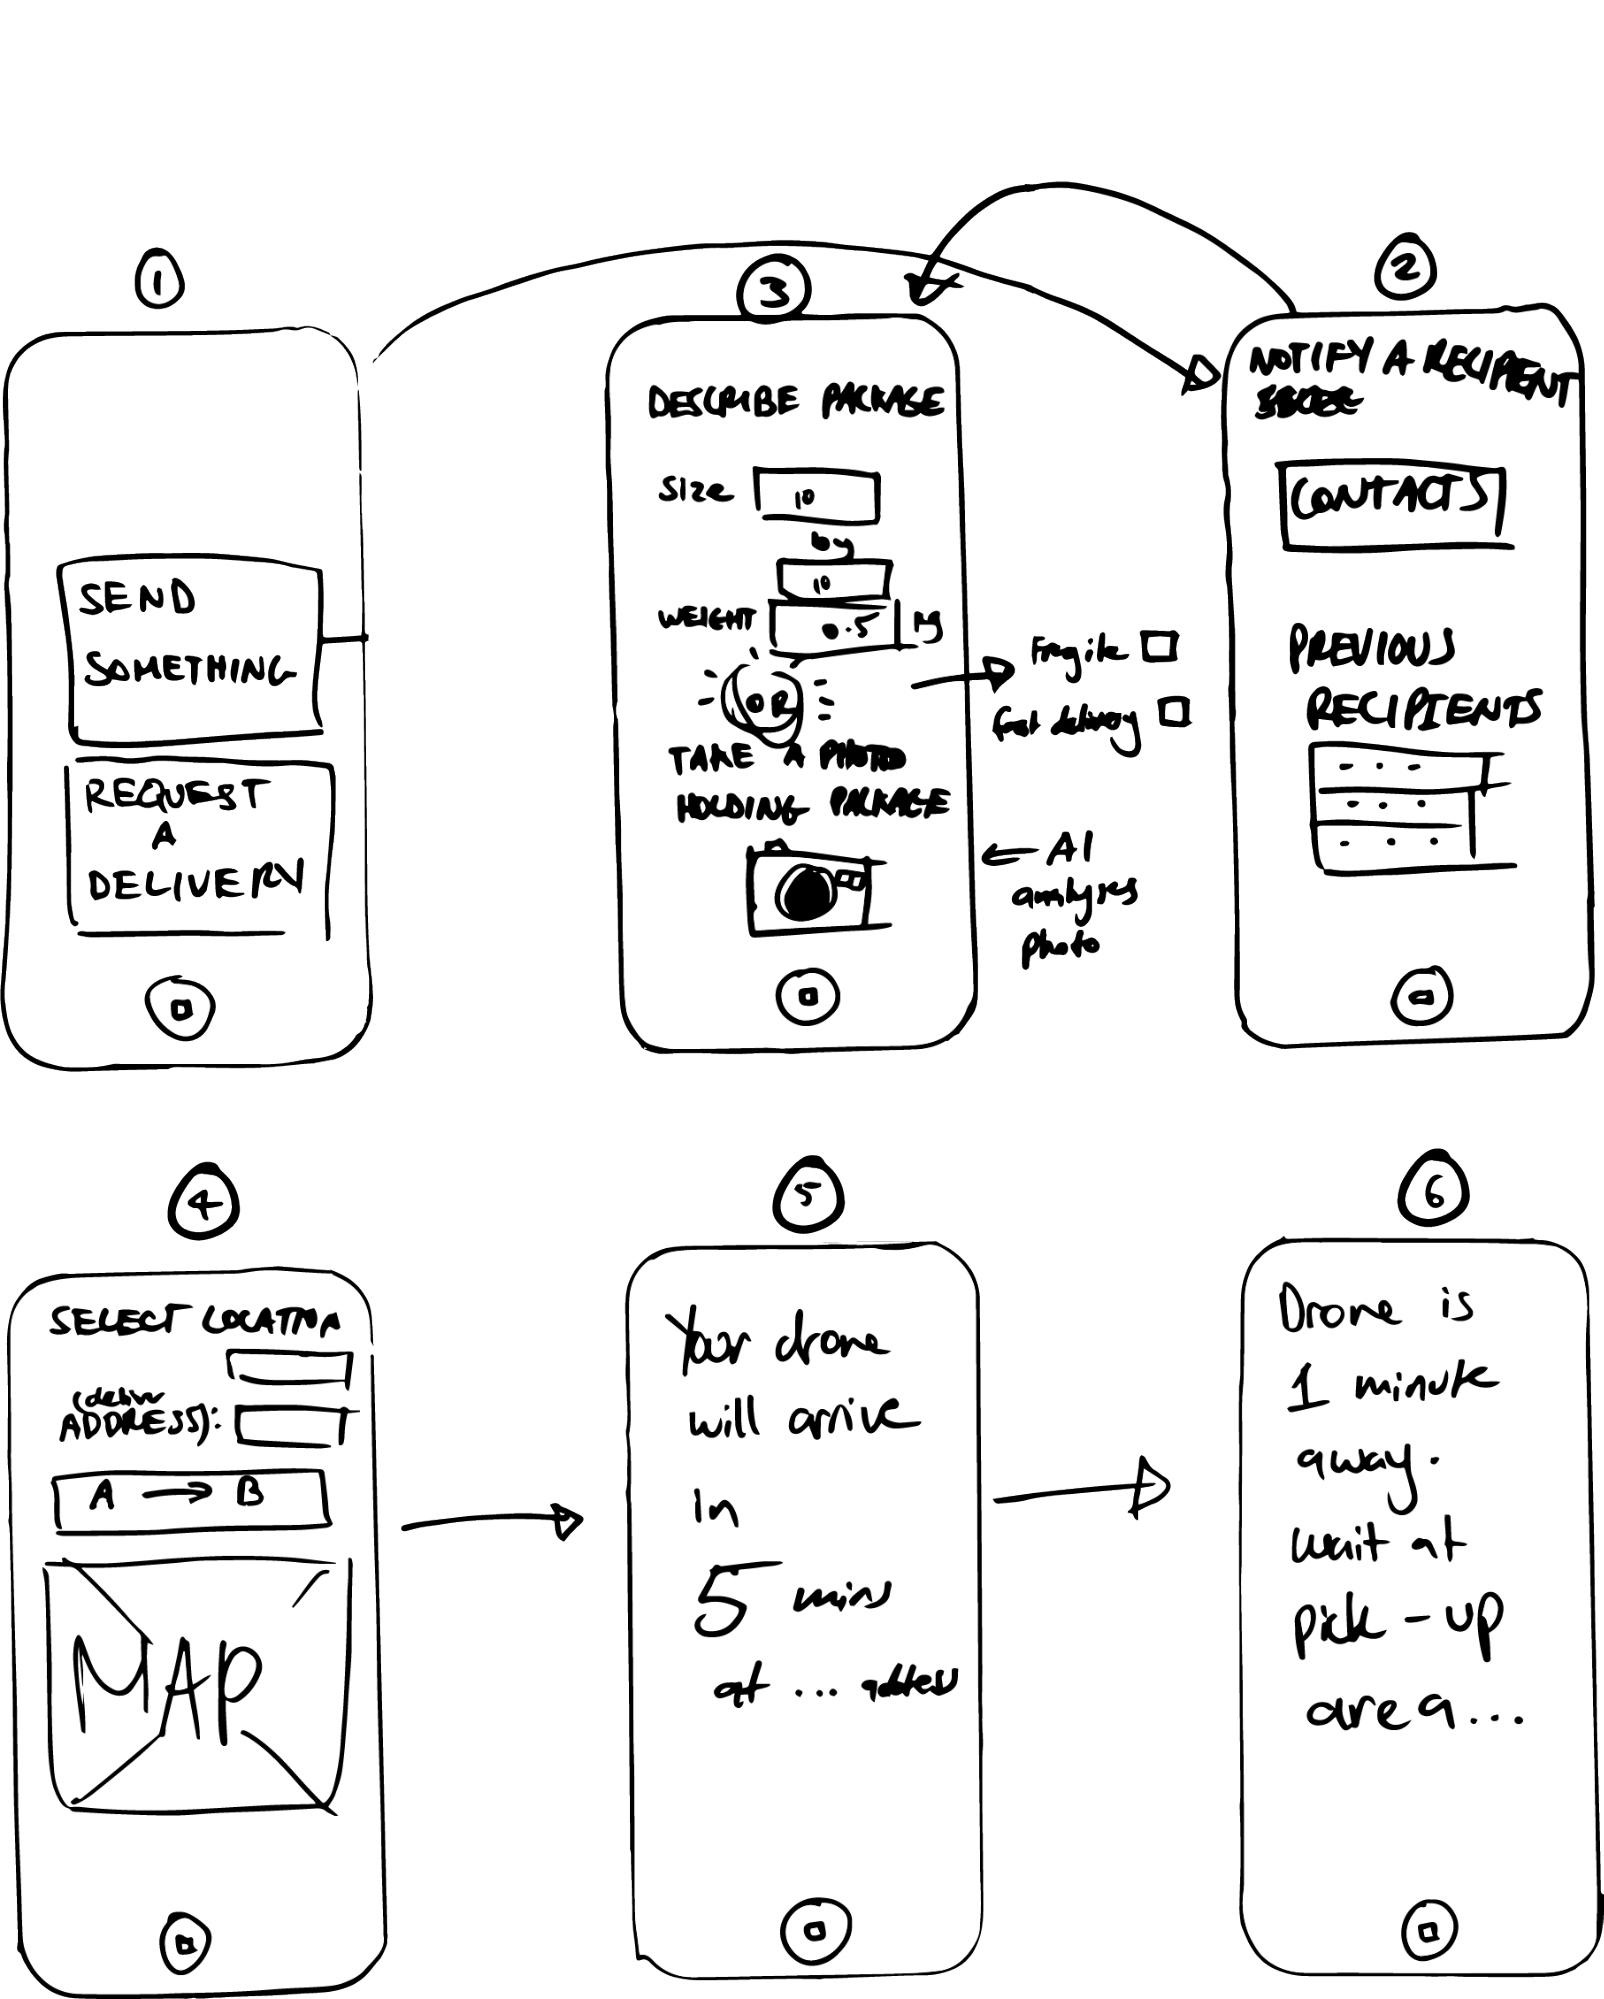 1
SEND
SOMETHING
REQUEST
A
DELIVERY
3
DESCRIBE PACKAGE
Size 10
by
10
WEIGHT 0.5 kg
OR
TAKE A PHOTO
HOLDING PACKAGE
Fragile
fast delivery
← AI
analyses
photo
2
NOTIFY A RECIPIENT
CONTACTS
PREVIOUS
RECIPIENTS
...
...
...
4
SELECT LOCATION
(deliver
ADDRESS):
A → B
MAP
5
Your drone
will arrive
in
5 mins
at ... address
6
Drone is
1 minute
away.
wait at
pick-up
area...